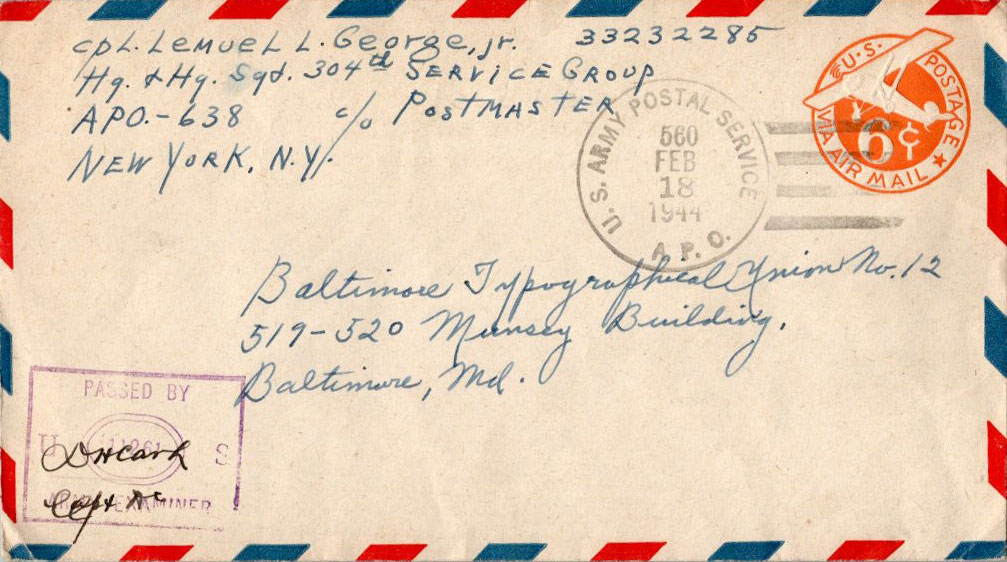 cpL. Lemuel L. George, jr. 33232285
Hq. & Hq. Sqd. 304th Service Group
APO.-638 c/o Postmaster
New York, N.Y.
U.S. POSTAGE
6¢
VIA AIR MAIL
U.S. ARMY POSTAL SERVICE
560
FEB
18
1944
A.P.O.
Baltimore Typographical Union No. 12
519-520 Munsey Building,
Baltimore, Md.
PASSED BY
U S
ARMY EXAMINER
Capt AC